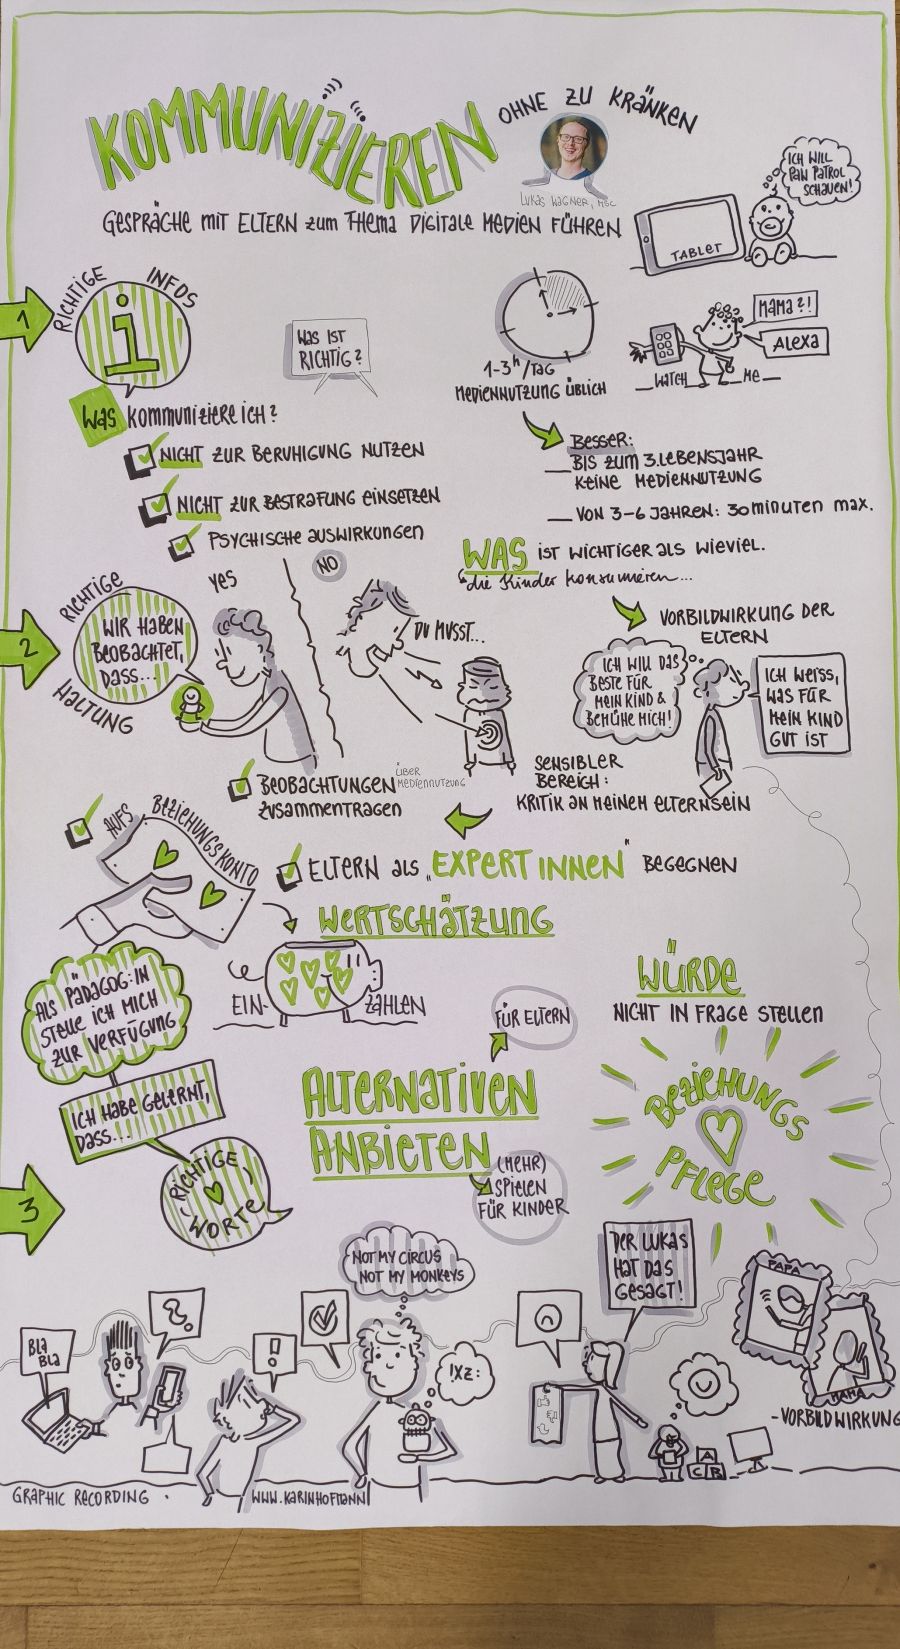 KOMMUNIZIEREN
OHNE ZU KRÄNKEN
LUKAS WAGNER, MSc
GESPRÄCHE MIT ELTERN ZUM THEMA DIGITALE MEDIEN FÜHREN
ICH WILL
PAW PATROL
SCHAUEN!
TABLET
1
RICHTIGE INFOS
i
WAS IST
RICHTIG?
1-3h/TAG
MEDIENNUTZUNG ÜBLICH
MAMA?!
ALEXA
WATCH ME
WAS KOMMUNIZIERE ICH?
NICHT ZUR BERUHIGUNG NUTZEN
NICHT ZUR BESTRAFUNG EINSETZEN
PSYCHISCHE AUSWIRKUNGEN
BESSER:
BIS ZUM 3. LEBENSJAHR
KEINE MEDIENNUTZUNG
VON 3-6 JAHREN: 30 MINUTEN MAX.
WAS IST WICHTIGER ALS WIEVIEL.
die Kinder konsumieren...
2
RICHTIGE
WIR HABEN
BEOBACHTET,
DASS...
HALTUNG
YES
NO
DU MUSST...
VORBILDWIRKUNG DER
ELTERN
ICH WILL DAS
BESTE FÜR
MEIN KIND &
BEMÜHE MICH!
ICH WEISS,
WAS FÜR
MEIN KIND
GUT IST
BEOBACHTUNGEN ÜBER MEDIENNUTZUNG
ZUSAMMENTRAGEN
SENSIBLER
BEREICH:
KRITIK AN MEINEM ELTERNSEIN
AUFS BEZIEHUNGSKONTO
ELTERN ALS "EXPERTINNEN" BEGEGNEN
WERTSCHÄTZUNG
EIN- ZAHLEN
ALS PÄDAGOG:IN
STELLE ICH MICH
ZUR VERFÜGUNG
WÜRDE
NICHT IN FRAGE STELLEN
FÜR ELTERN
ALTERNATIVEN
ANBIETEN
(MEHR)
SPIELEN
FÜR KINDER
BEZIEHUNGS
PFLEGE
ICH HABE GELERNT,
DASS...
3
RICHTIGE
WORTE
NOT MY CIRCUS
NOT MY MONKEYS
DER LUKAS
HAT DAS
GESAGT!
PAPA
MAMA
-VORBILDWIRKUNG
BLA
BLA
?
!
!XZ:
A
C B
GRAPHIC RECORDING .
WWW.KARINHOFMANN